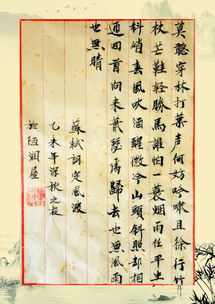 莫聼穿林打葉声何妨吟嘯且徐行竹
杖芒鞋轻勝馬誰怕一蓑烟雨任平生
料峭春风吹酒醒微冷山頭斜照却相
迎回首向来萧瑟處归去也無風雨
也無晴
蘇軾詞定風波
乙未年深秋之夜
於陋涧屋